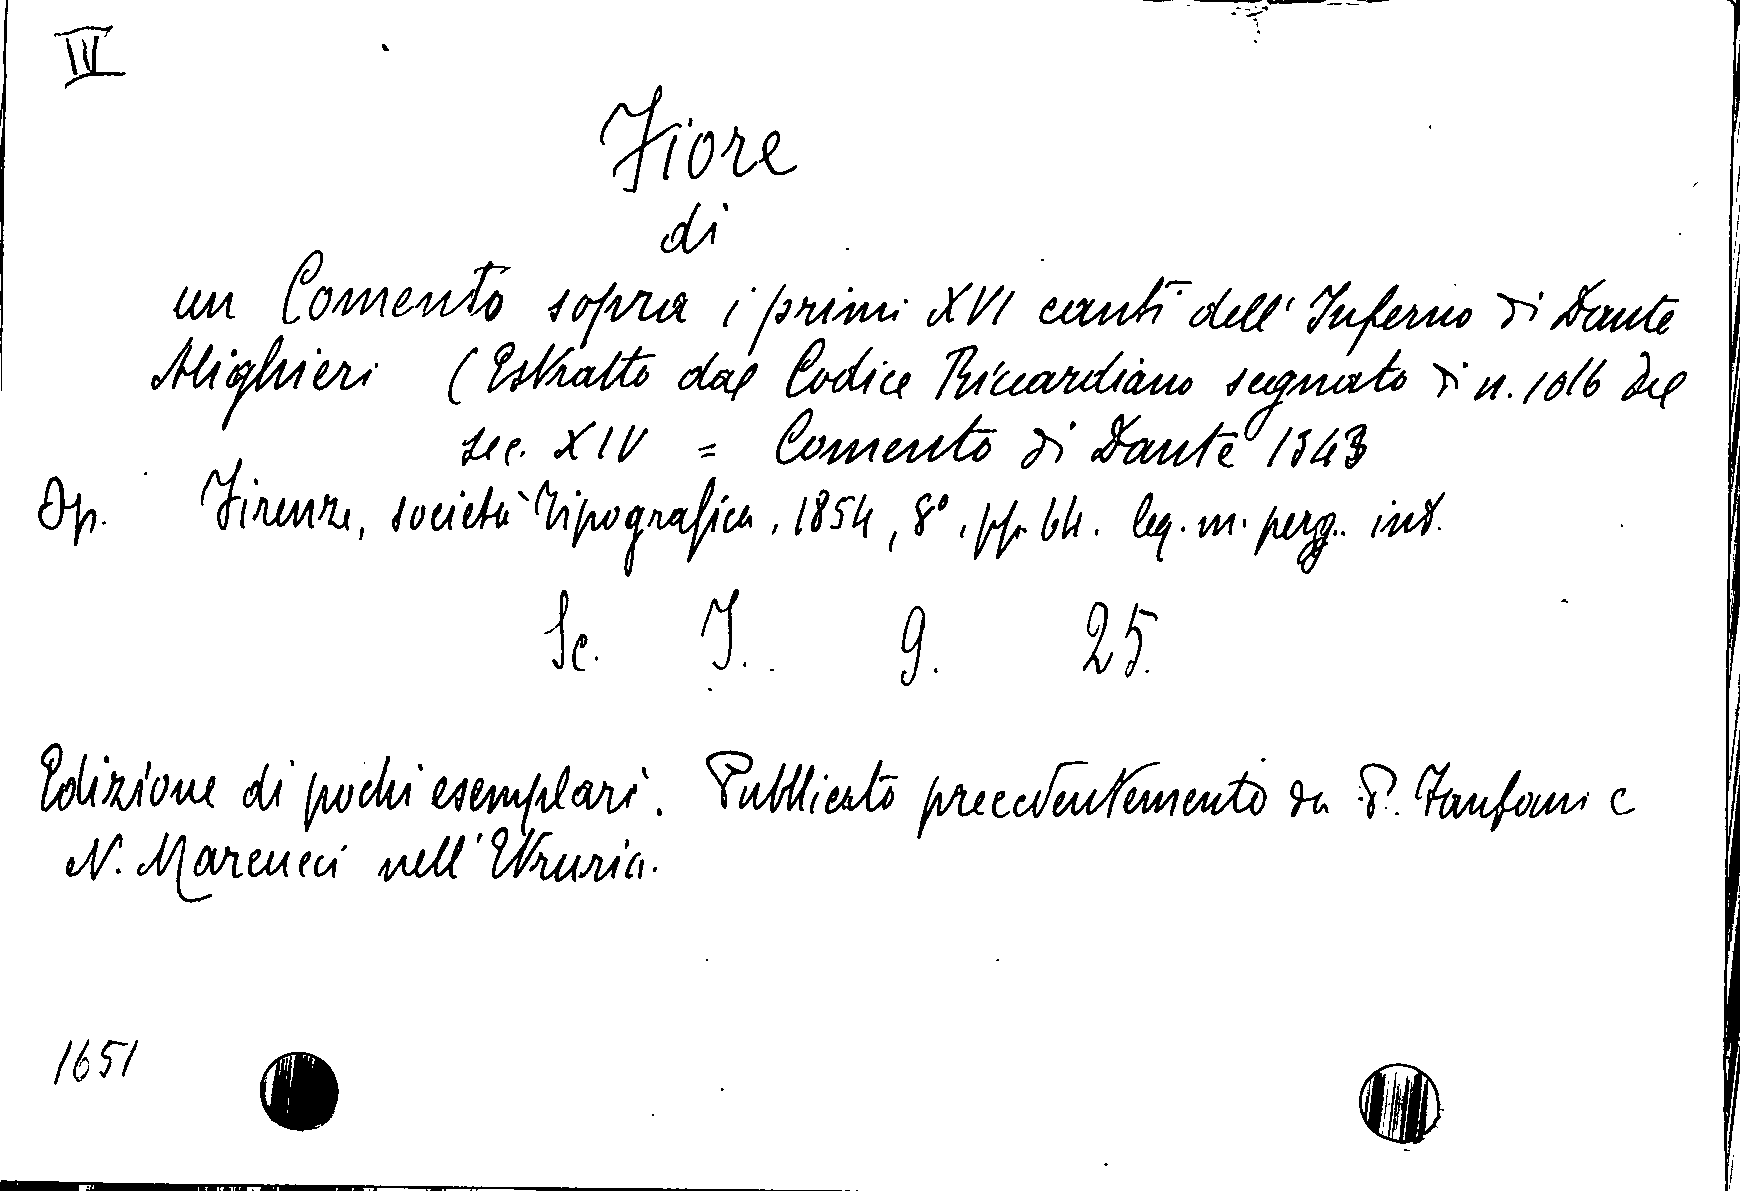 IV
Fiore
di
un Comento sopra i primi XVI canti dell'Inferno di Dante
Alighieri (Estratto dal Codice Riccardiano segnato di n. 1016 del
sec. XIV = Comento di Dante 1343
Op. Firenze, società Tipografica, 1854, 8°, pp. 64. leg. m. perg. int.
Sc. I. 9. 25.
Edizione di pochi esemplari. Pubblicato precedentemento da P. Fanfani e
N. Marcucci nell'Etruria.
1651